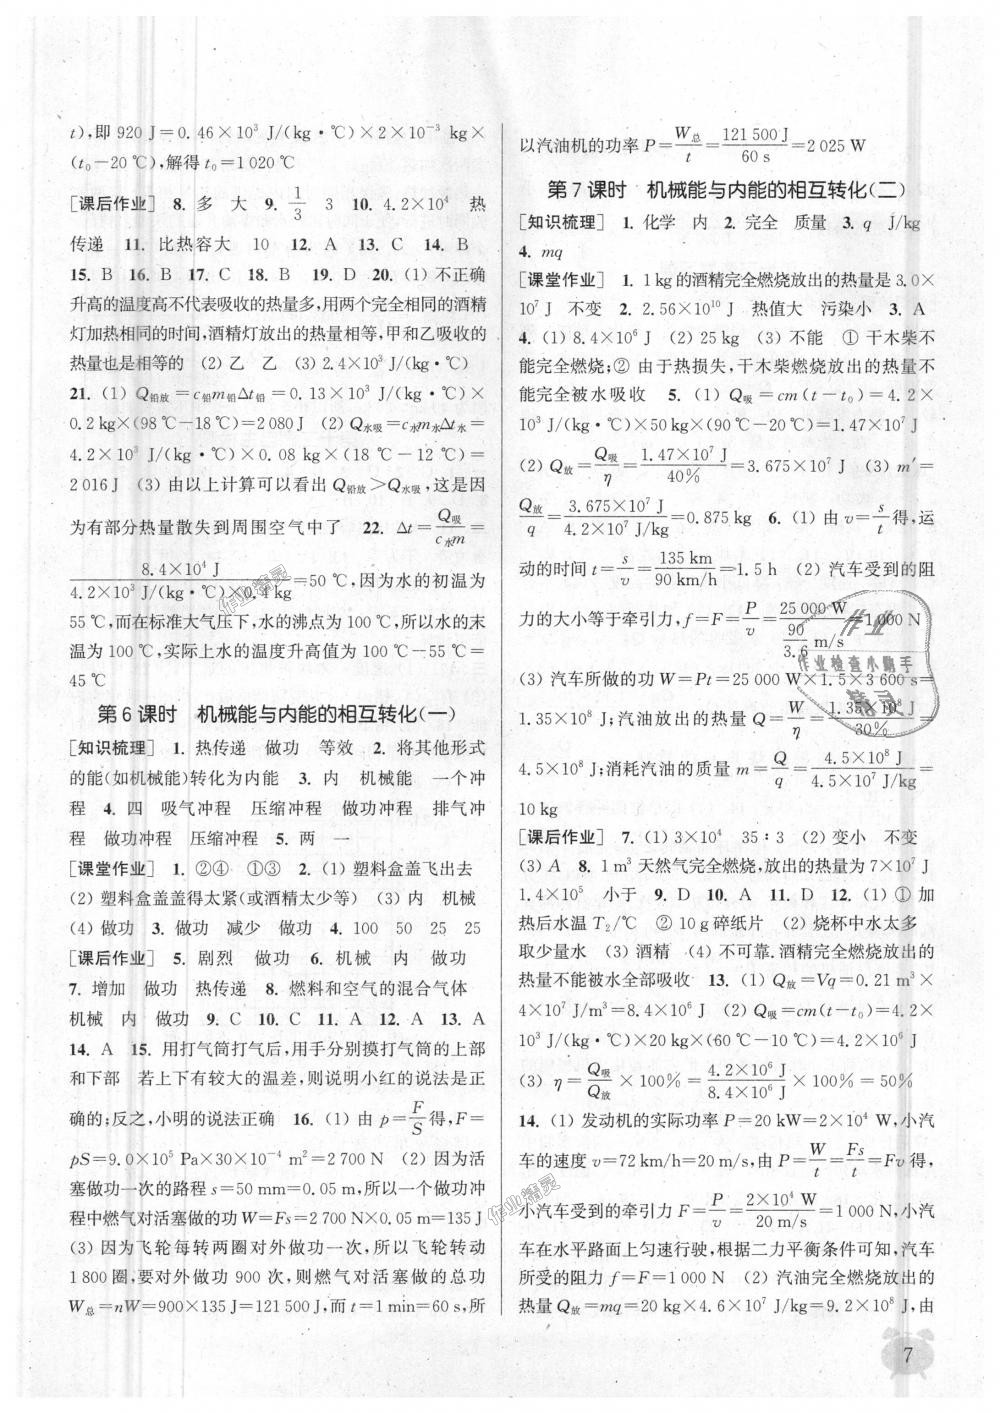 t),即 920 J=0.46×10³ J/(kg·℃)×2×10⁻³ kg×
(t₀-20 ℃),解得 t₀=1 020 ℃
[课后作业] 8. 多 大 9. 1/3 3 10. 4.2×10⁴ 热
传递 11. 比热容大 10 12. A 13. C 14. B
15. B 16. B 17. C 18. B 19. D 20. (1) 不正确
升高的温度高不代表吸收的热量多,用两个完全相同的酒精
灯加热相同的时间,酒精灯放出的热量相等,甲和乙吸收的
热量也是相等的 (2) 乙 乙 (3) 2.4×10³ J/(kg·℃)
21. (1) Q铅放=c铅m铅Δt铅=0.13×10³ J/(kg·℃)×
0.2 kg×(98 ℃-18 ℃)=2 080 J (2) Q水吸=c水m水Δt水=
4.2×10³ J/(kg·℃)×0.08 kg×(18 ℃-12 ℃)=
2 016 J (3) 由以上计算可以看出 Q铅放>Q水吸,这是因
为有部分热量散失到周围空气中了 22. Δt=Q吸/c水m=
8.4×10⁴ J/4.2×10³ J/(kg·℃)×0.4 kg=50 ℃,因为水的初温为
55 ℃,而在标准大气压下,水的沸点为 100 ℃,所以水的末
温为 100 ℃,实际上水的温度升高值为 100 ℃-55 ℃=
45 ℃
第 6 课时 机械能与内能的相互转化(一)
[知识梳理] 1. 热传递 做功 等效 2. 将其他形式
的能(如机械能)转化为内能 3. 内 机械能 一个冲
程 4. 四 吸气冲程 压缩冲程 做功冲程 排气冲
程 做功冲程 压缩冲程 5. 两 一
[课堂作业] 1. ②④ ①③ 2. (1) 塑料盒盖飞出去
(2) 塑料盒盖盖得太紧(或酒精太少等) (3) 内 机械
(4) 做功 3. 做功 减少 做功 4. 100 50 25 25
[课后作业] 5. 剧烈 做功 6. 机械 内 做功
7. 增加 做功 热传递 8. 燃料和空气的混合气体
机械 内 做功 9. C 10. C 11. A 12. A 13. A
14. A 15. 用打气筒打气后,用手分别摸打气筒的上部
和下部 若上下有较大的温差,则说明小红的说法是正
确的;反之,小明的说法正确 16. (1) 由 p=F/S得,F=
pS=9.0×10⁵ Pa×30×10⁻⁴ m²=2 700 N (2) 因为活
塞做功一次的路程 s=50 mm=0.05 m,所以一个做功冲
程中燃气对活塞做的功 W=Fs=2 700 N×0.05 m=135 J
(3) 因为飞轮每转两圈对外做功一次,所以飞轮转动
1 800 圈,要对外做功 900 次,则燃气对活塞做的总功
W总=nW=900×135 J=121 500 J,而 t=1 min=60 s,所
以汽油机的功率 P=W总/t=121 500 J/60 s=2 025 W
第 7 课时 机械能与内能的相互转化(二)
[知识梳理] 1. 化学 内 2. 完全 质量 3. q J/kg
4. mq
[课堂作业] 1. 1 kg 的酒精完全燃烧放出的热量是 3.0×
10⁷ J 不变 2. 2.56×10¹⁰ J 热值大 污染小 3. A
4. (1) 8.4×10⁶ J (2) 25 kg (3) 不能 ① 干木柴不
能完全燃烧;② 由于热损失,干木柴燃烧放出的热量不
能完全被水吸收 5. (1) Q吸=cm(t-t₀)=4.2×
10³ J/(kg·℃)×50 kg×(90 ℃-20 ℃)=1.47×10⁷ J
(2) Q放=Q吸/η=1.47×10⁷ J/40%=3.675×10⁷ J (3) m′=
Q放/q=3.675×10⁷ J/4.2×10⁷ J/kg=0.875 kg 6. (1) 由 v=s/t得,运
动的时间 t=s/v=135 km/90 km/h=1.5 h (2) 汽车受到的阻
力的大小等于牵引力,f=F=P/v=25 000 W/(90/3.6 m/s)=1 000 N
(3) 汽车所做的功 W=Pt=25 000 W×1.5×3 600 s=
1.35×10⁸ J;汽油放出的热量 Q=W/η=1.35×10⁸ J/30%=
4.5×10⁸ J;消耗汽油的质量 m=Q/q=4.5×10⁸ J/4.5×10⁷ J/kg=
10 kg
[课后作业] 7. (1) 3×10⁴ 35∶3 (2) 变小 不变
(3) A 8. 1 m³ 天然气完全燃烧,放出的热量为 7×10⁷ J
1.4×10⁵ 小于 9. D 10. A 11. D 12. (1) ① 加
热后水温 T₂/℃ ② 10 g 碎纸片 (2) 烧杯中水太多
取少量水 (3) 酒精 (4) 不可靠.酒精完全燃烧放出的
热量不能被水全部吸收 13. (1) Q放=Vq=0.21 m³×
4×10⁷ J/m³=8.4×10⁶ J (2) Q吸=cm(t-t₀)=4.2×
10³ J/(kg·℃)×20 kg×(60 ℃-10 ℃)=4.2×10⁶ J
(3) η=Q吸/Q放×100%=4.2×10⁶ J/8.4×10⁶ J×100%=50%
14. (1) 发动机的实际功率 P=20 kW=2×10⁴ W,小汽
车的速度 v=72 km/h=20 m/s,由 P=W/t=Fs/t=Fv 得,
小汽车受到的牵引力 F=P/v=2×10⁴ W/20 m/s=1 000 N,小汽
车在水平路面上匀速行驶,根据二力平衡条件可知,汽车
所受的阻力 f=F=1 000 N (2) 汽油完全燃烧放出的
热量 Q放=mq=20 kg×4.6×10⁷ J/kg=9.2×10⁸ J,由
7
作业精灵
作业精灵
作业
作业检查小助手
精灵